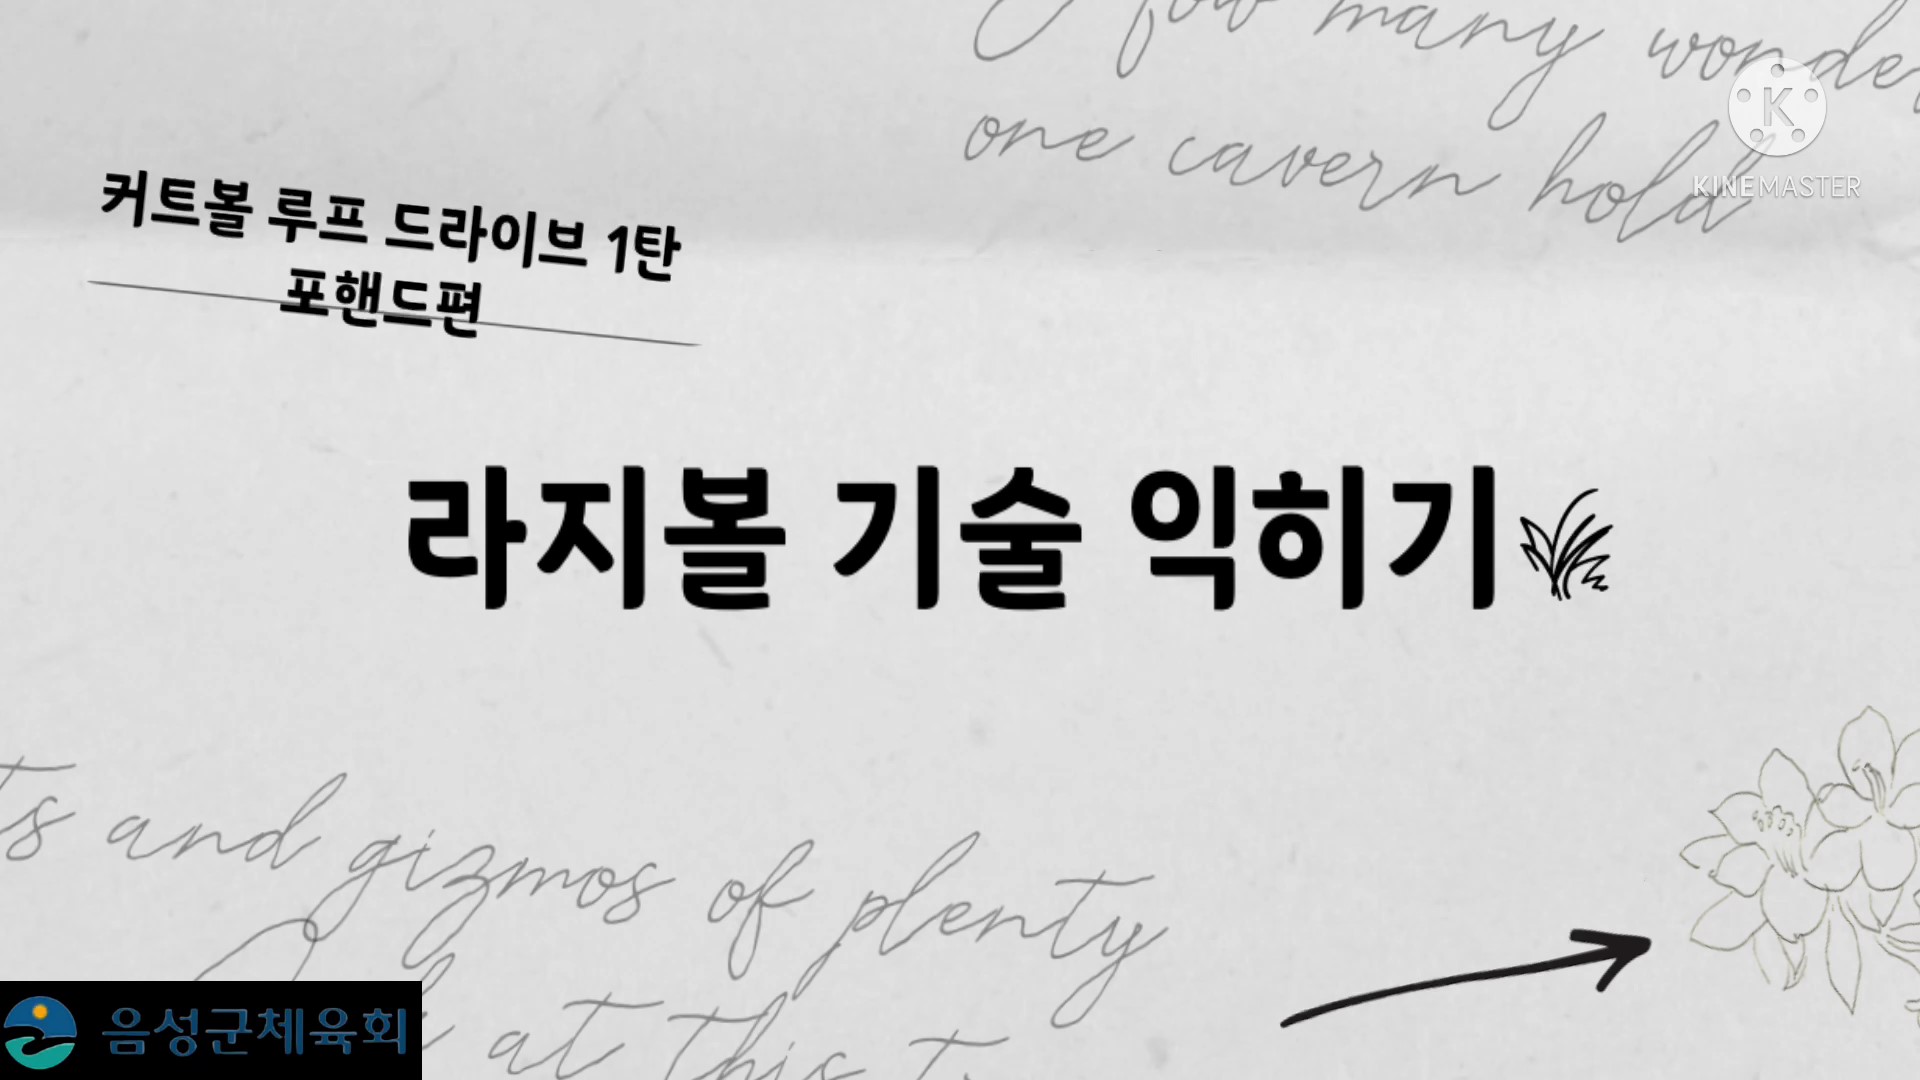 few many wonde
one cavern hold
KINEMASTER
커트볼 루프 드라이브 1탄
포핸드편
라지볼 기술 익히기
ts and gizmos of plenty
at this t
음성군체육회